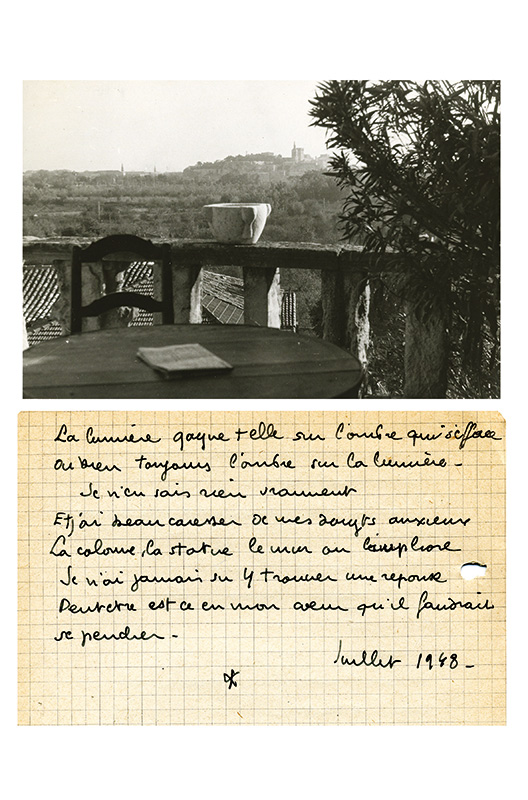 La lumière gagne t elle sur l'ombre qui s'efface
ou bien toujours l'ombre sur la lumière -
Je n'en sais rien vraiment
Et j'ai beau caresser de mes doigts anxieux
La colonne, la statue le mur ou l'amphore
Je n'ai jamais su y trouver une reponse
Peut etre est ce en mon coeur qu'il faudrait
se pencher -
Juillet 1948 -